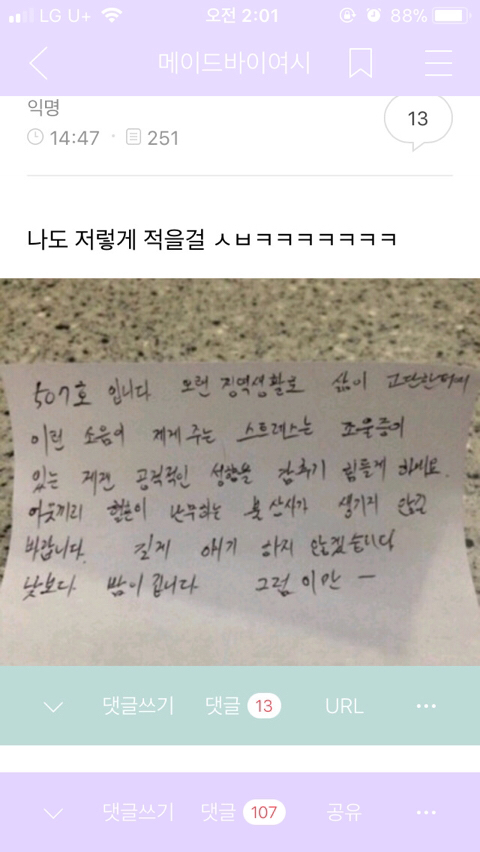 LG U+ 오전 2:01 88%
메이드바이여시
익명
14:47 · 251
13
나도 저렇게 적을걸 ㅅㅂㅋㅋㅋㅋㅋㅋㅋ
507호 입니다 오랜 징역생활로 삶이 고단한터에
이런 소음이 제게 주는 스트레스는 조울증이
있는 제겐 공격적인 성향을 감추기 힘들게 하네요.
이웃끼리 혈흔이 난무하는 불상사가 생기지 않길
바랍니다. 길게 얘기 하지 않겠습니다
낮보다 밤이 깁니다 그럼 이만 ㅡ
댓글쓰기 댓글 13 URL ···
댓글쓰기 댓글 107 공유 ···